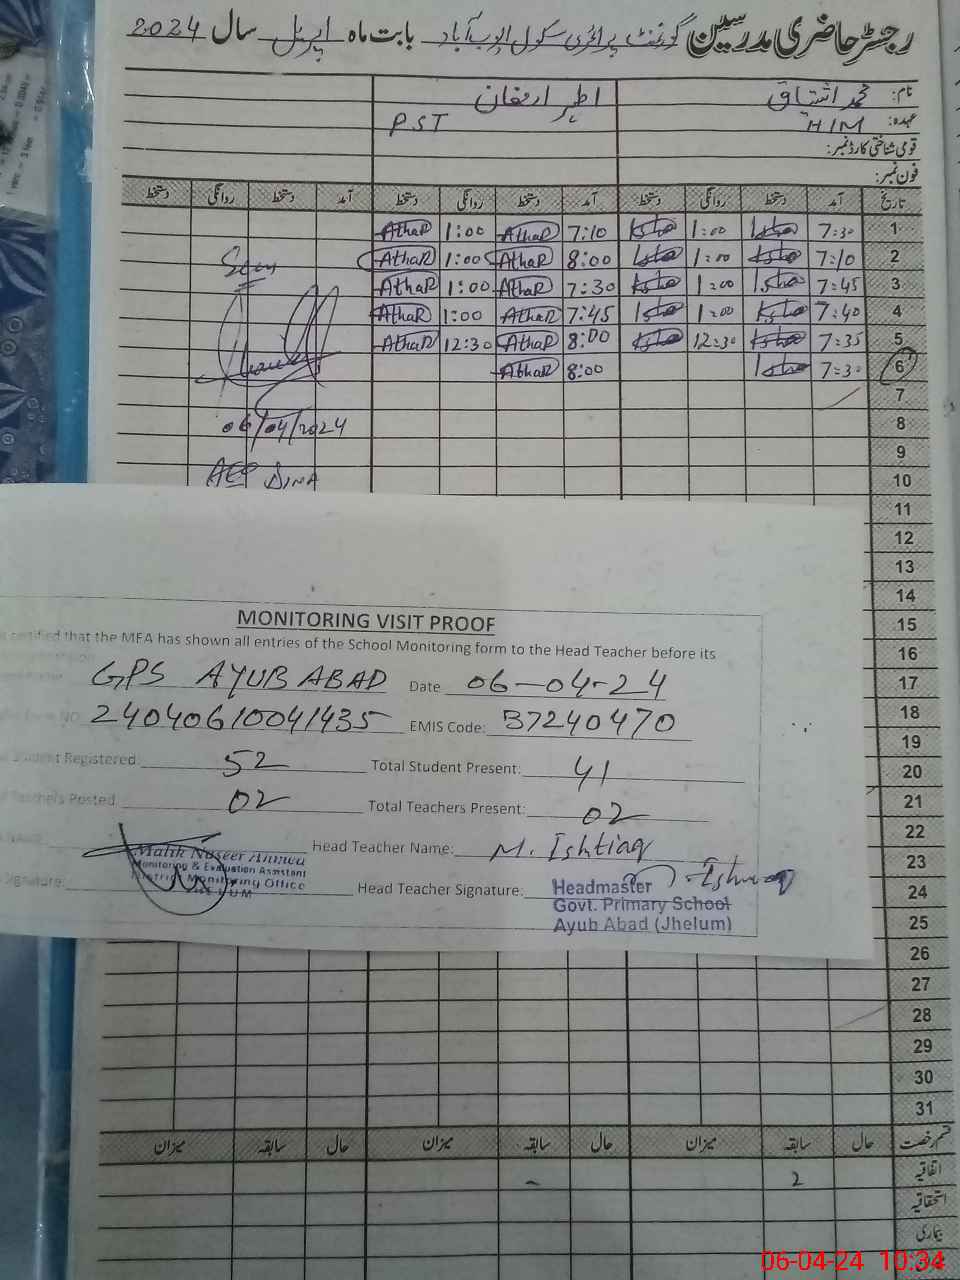 رجسٹر حاضری مدرسین گورنمنٹ پرائمری سکول ایوب آباد بابت ماہ اپریل سال 2024
نام: محمد اشتیاق اطہر ارمغان
عہدہ: H/M PST
قومی شناختی کارڈ نمبر:
فون نمبر:
تاریخ آمد دستخط روانگی دستخط آمد دستخط روانگی دستخط آمد دستخط روانگی دستخط
1 7:30 Isha 1:00 Isha 7:10 AthaR 1:00 AthaR
2 7:10 Isha 1:00 Isha 8:00 AthaR 1:00 AthaR
3 7:45 Isha 1:00 Isha 7:30 AthaR 1:00 AthaR
4 7:40 Isha 1:00 Isha 7:45 AthaR 1:00 AthaR
5 7:35 Isha 12:30 Isha 8:00 AthaR 12:30 AthaR
6 7:30 Isha 8:00 AthaR
7
8
9
10
Seen
06/04/2024
AEO DINA
11
12
13
14
15
16
17
18
19
20
21
22
23
24
25
26
27
28
29
30
31
MONITORING VISIT PROOF
certified that the MEA has shown all entries of the School Monitoring form to the Head Teacher before its
GPS AYUB ABAD Date 06-04-24
24040610041435 EMIS Code: 37240470
Student Registered: 52 Total Student Present: 41
Teachers Posted 02 Total Teachers Present: 02
Head Teacher Name: M. Ishtiaq
Malik Naseer Anwar
Monitoring & Evaluation Assistant
District Monitoring Office
Signature: Head Teacher Signature:
Headmaster
Govt. Primary School
Ayub Abad (Jhelum)
قسم رخصت حال سابقہ میزان حال سابقہ میزان حال سابقہ میزان
اتفاقیہ 2 -
استحقاقیہ
بیماری
06-04-24 10:34